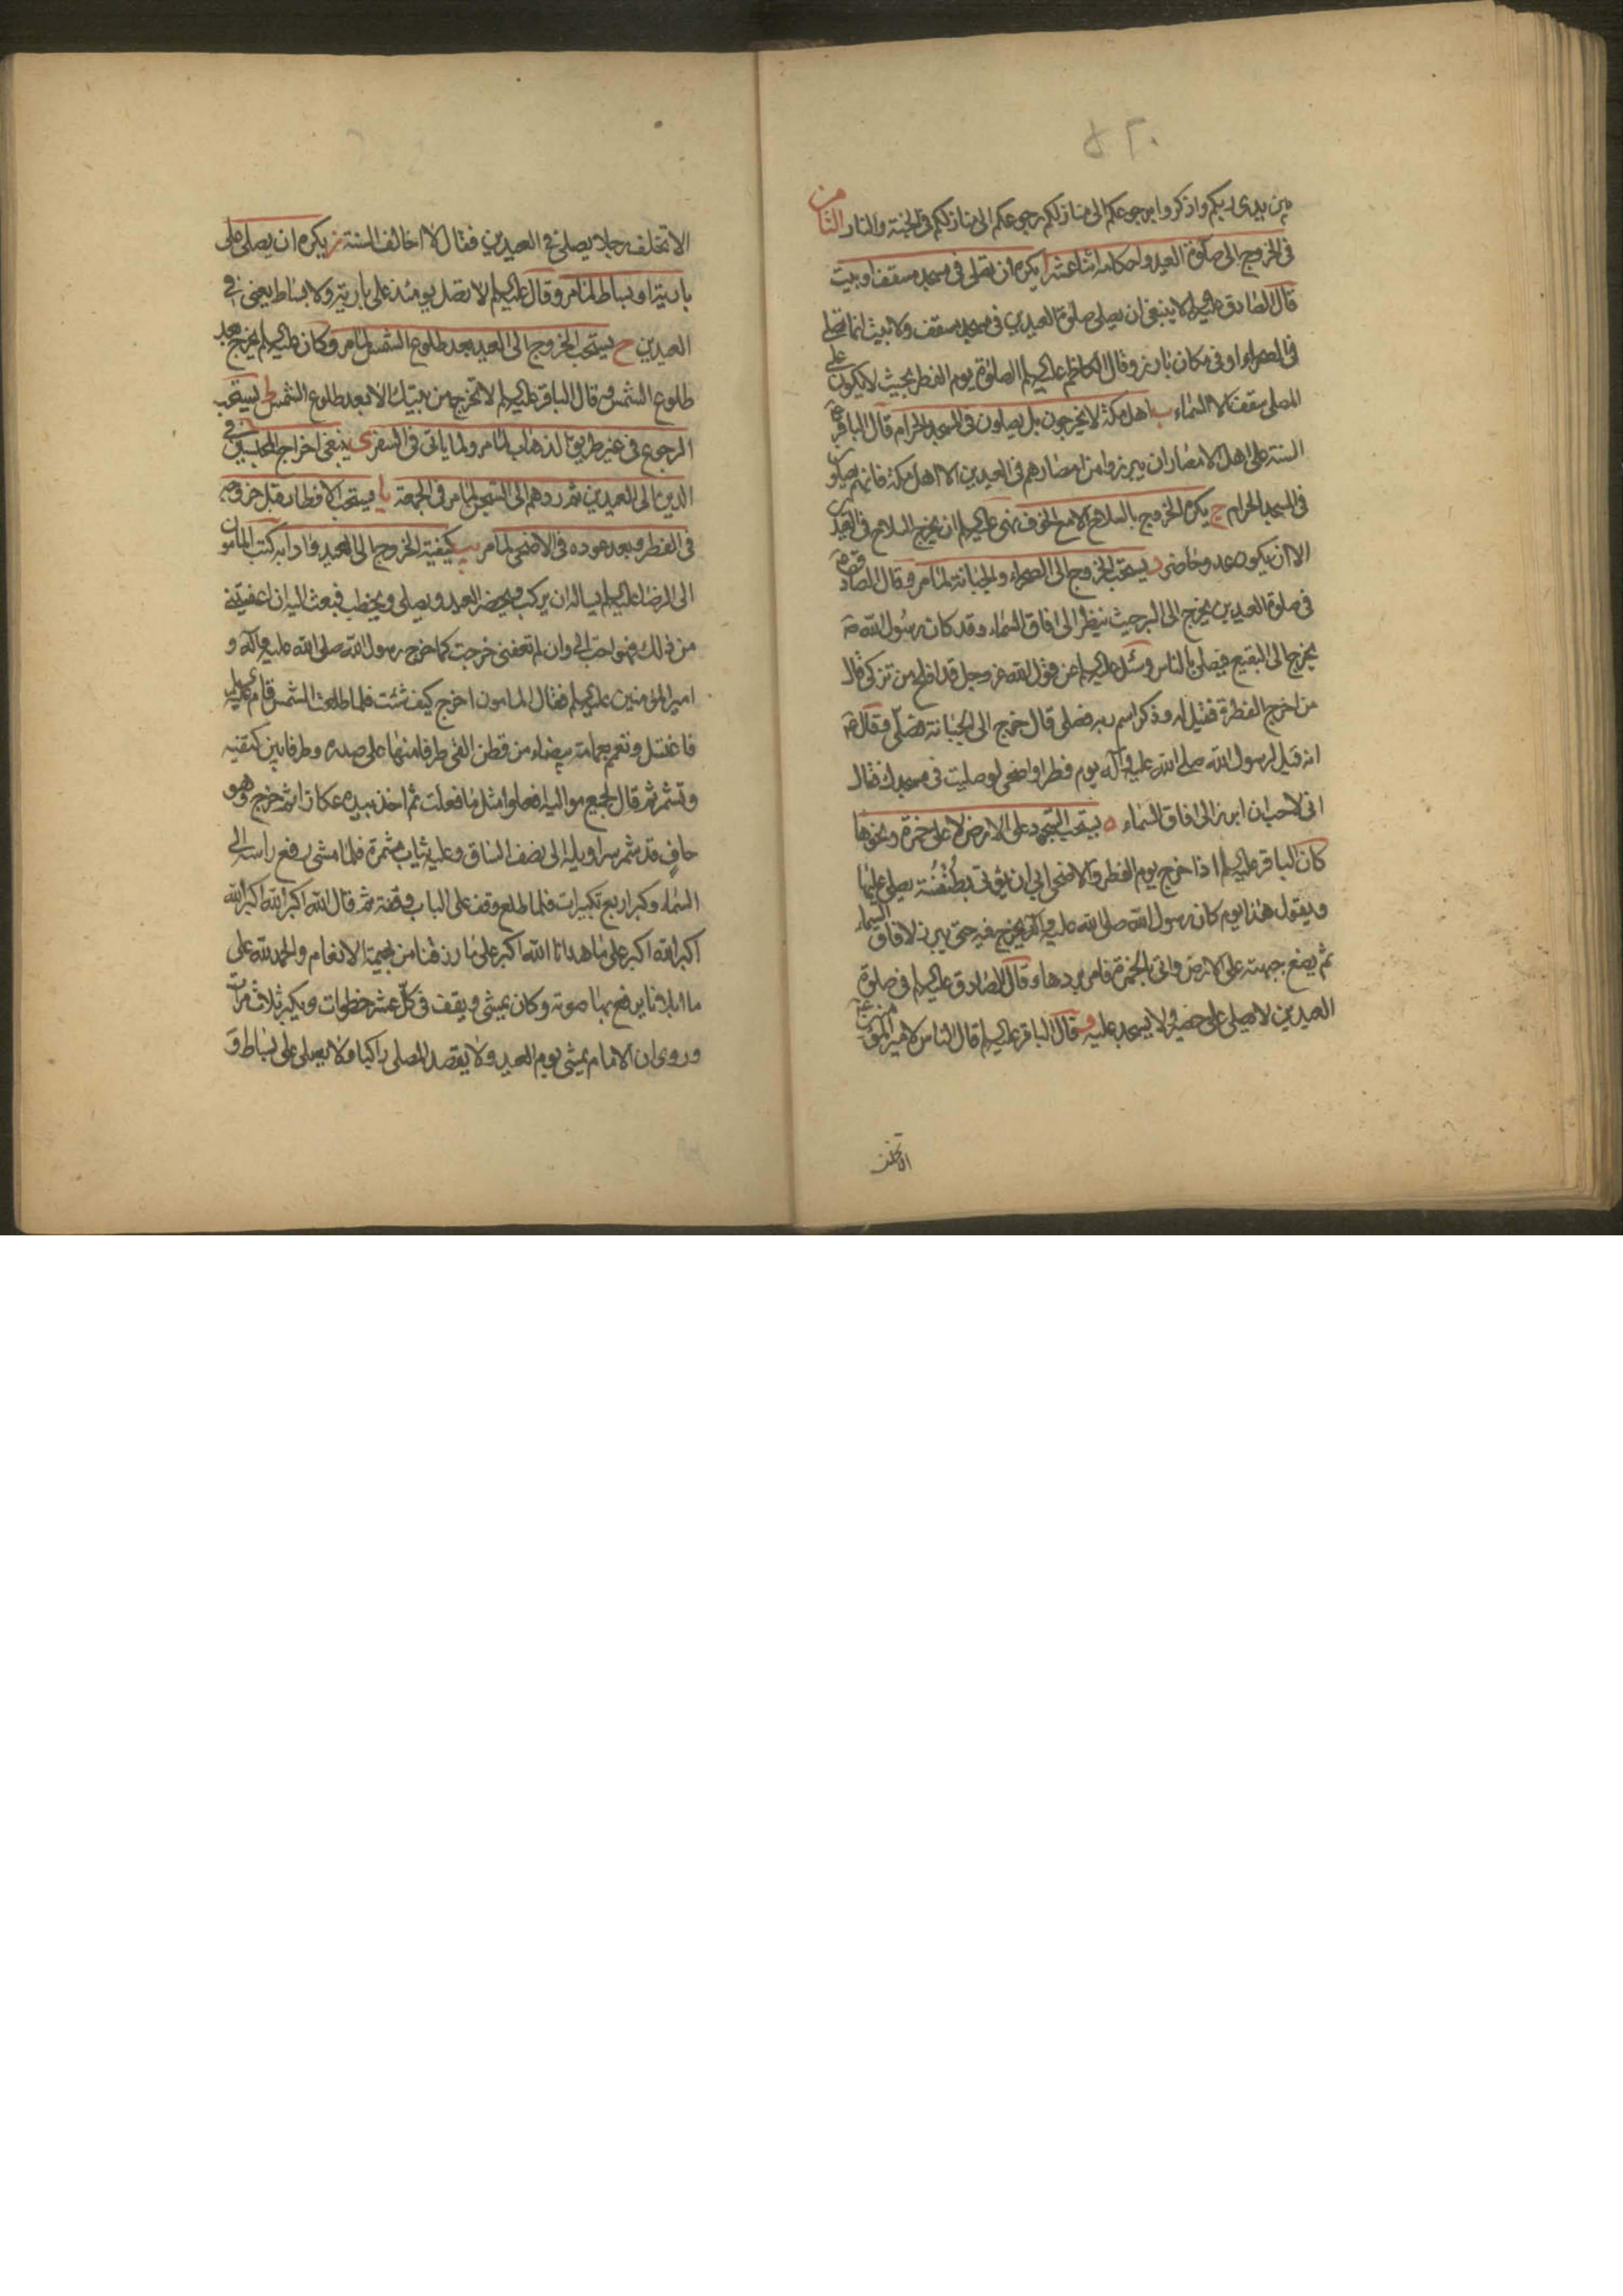 ٥٢٠
بين يدي ربكم واذكروا برجوعكم الى منازلكم رجوعكم الى منازلكم في الجنة والنار الثامن
في الخروج الى صلوة العيد واحكامه اثنا عشر ا يكره ان تصلى في مسجد مسقف او بيت
قال الصادق عليه السلم لا ينبغي ان يصلى صلوة العيدين في مسجد مسقف ولا بيت انما تصلى
في الصحراء او في مكان بارز وقال الكاظم عليه السلم الصلوة يوم الفطر بحيث لا يكون على
المصلى سقف الا السماء ب اهل مكة لا يخرجون بل يصلون في المسجد الحرام قال الباقر ع
السنة على اهل الامصار ان يبرزوا من امصارهم في العيدين الا اهل مكة فانهم يصلون
في المسجد الحرام ج يكره الخروج بالسلاح الا مع الخوف نهى عليه السلم ان يخرج السلاح في العيدين
الا ان يكون عدو حاضر د يستحب الخروج الى الصحراء والجبانة لما مر وقال الصادق ع
في صلوة العيدين يخرج الى البر حيث ينظر الى افاق السماء وقد كان رسول الله ص
يخرج الى البقيع فيصلى بالناس وسئل عليه السلم عن قول الله عز وجل قد افلح من تزكى قال
من اخرج الفطرة فقيل له وذكر اسم ربه فصلى قال خرج الى الجبانة فصلى وقال ع
انه قيل لرسول الله صلى الله عليه وآله يوم فطر او اضحى لو صليت في مسجدك فقال
انى لاحب ان ابرز الى افاق السماء ه يستحب السجود على الارض لا على خمرة ونحوها
كان الباقر عليه السلم اذا خرج يوم الفطر والاضحى ابى ان يؤتى بطُنْفُسَة يصلى عليها
ويقول هذا يوم كان رسول الله صلى الله عليه وآله يخرج فيه حتى يبرز لافاق السماء
ثم يضع جبهته على الارض واتى بالخمرة فامر بردها وقال الصادق عليه السلم في صلوة
العيدين لا يصلى على حصير ولا يسجد عليه و قال الباقر عليه السلم قال الناس لامير المؤمنين ع
الا تخلف
الا تخلف رجلا يصلى في العيدين فقال لا اخالف السنة ز يكره ان يصلى على
بارية او بساط لما مر وقال عليه السلم لا تصل يومئذ على بارية ولا بساط يعنى في
العيدين ح يستحب الخروج الى العيد بعد طلوع الشمس لما مر وكان عليه السلم يخرج بعد
طلوع الشمس وقال الباقر عليه السلم لا تخرج من بيتك الا بعد طلوع الشمس ط يستحب
الرجوع في غير طريق الذهاب لما مر ولما ياتى في السفر ى ينبغى اخراج المحبسين في
الدين الى العيدين ثم ردهم الى السجن لما مر في الجمعة يا يستحب الافطار قبل خروجه
في الفطر وبعد عوده في الاضحى لما مر يب كيفية الخروج الى العيد وادابه كتب المامون
الى الرضا عليه السلم يساله ان يركب ويحضر العيد ويصلى ويخطب فبعث اليه ان اعفيتنى
من ذلك فهو احب الى وان لم تعفنى خرجت كما خرج رسول الله صلى الله عليه وآله و
امير المؤمنين عليه السلم فقال المامون اخرج كيف شئت فلما طلعت الشمس قام عليه السلم
فاغتسل وتعمم بعمامة بيضاء من قطن القى طرفا منها على صدره وطرفا بين كتفيه
وتشمر ثم قال لجميع مواليه افعلوا مثل ما فعلت ثم اخذ بيده عكازا ثم خرج وهو
حافٍ قد شمر سراويله الى نصف الساق وعليه ثياب مشمرة فلما مشى رفع راسه الى
السماء وكبر اربع تكبيرات فلما طلع وقف على الباب وقفة ثم قال الله اكبر الله اكبر الله
اكبر الله اكبر على ما هدانا الله اكبر على ما رزقنا من بهيمة الانعام والحمد لله على
ما ابلانا يرفع بها صوته وكان يمشى ويقف في كل عشر خطوات ويكبر ثلاث مرات
وروى ان الامام يمشى يوم العيد ولا يقصد المصلى راكبا ولا يصلى على بساط و